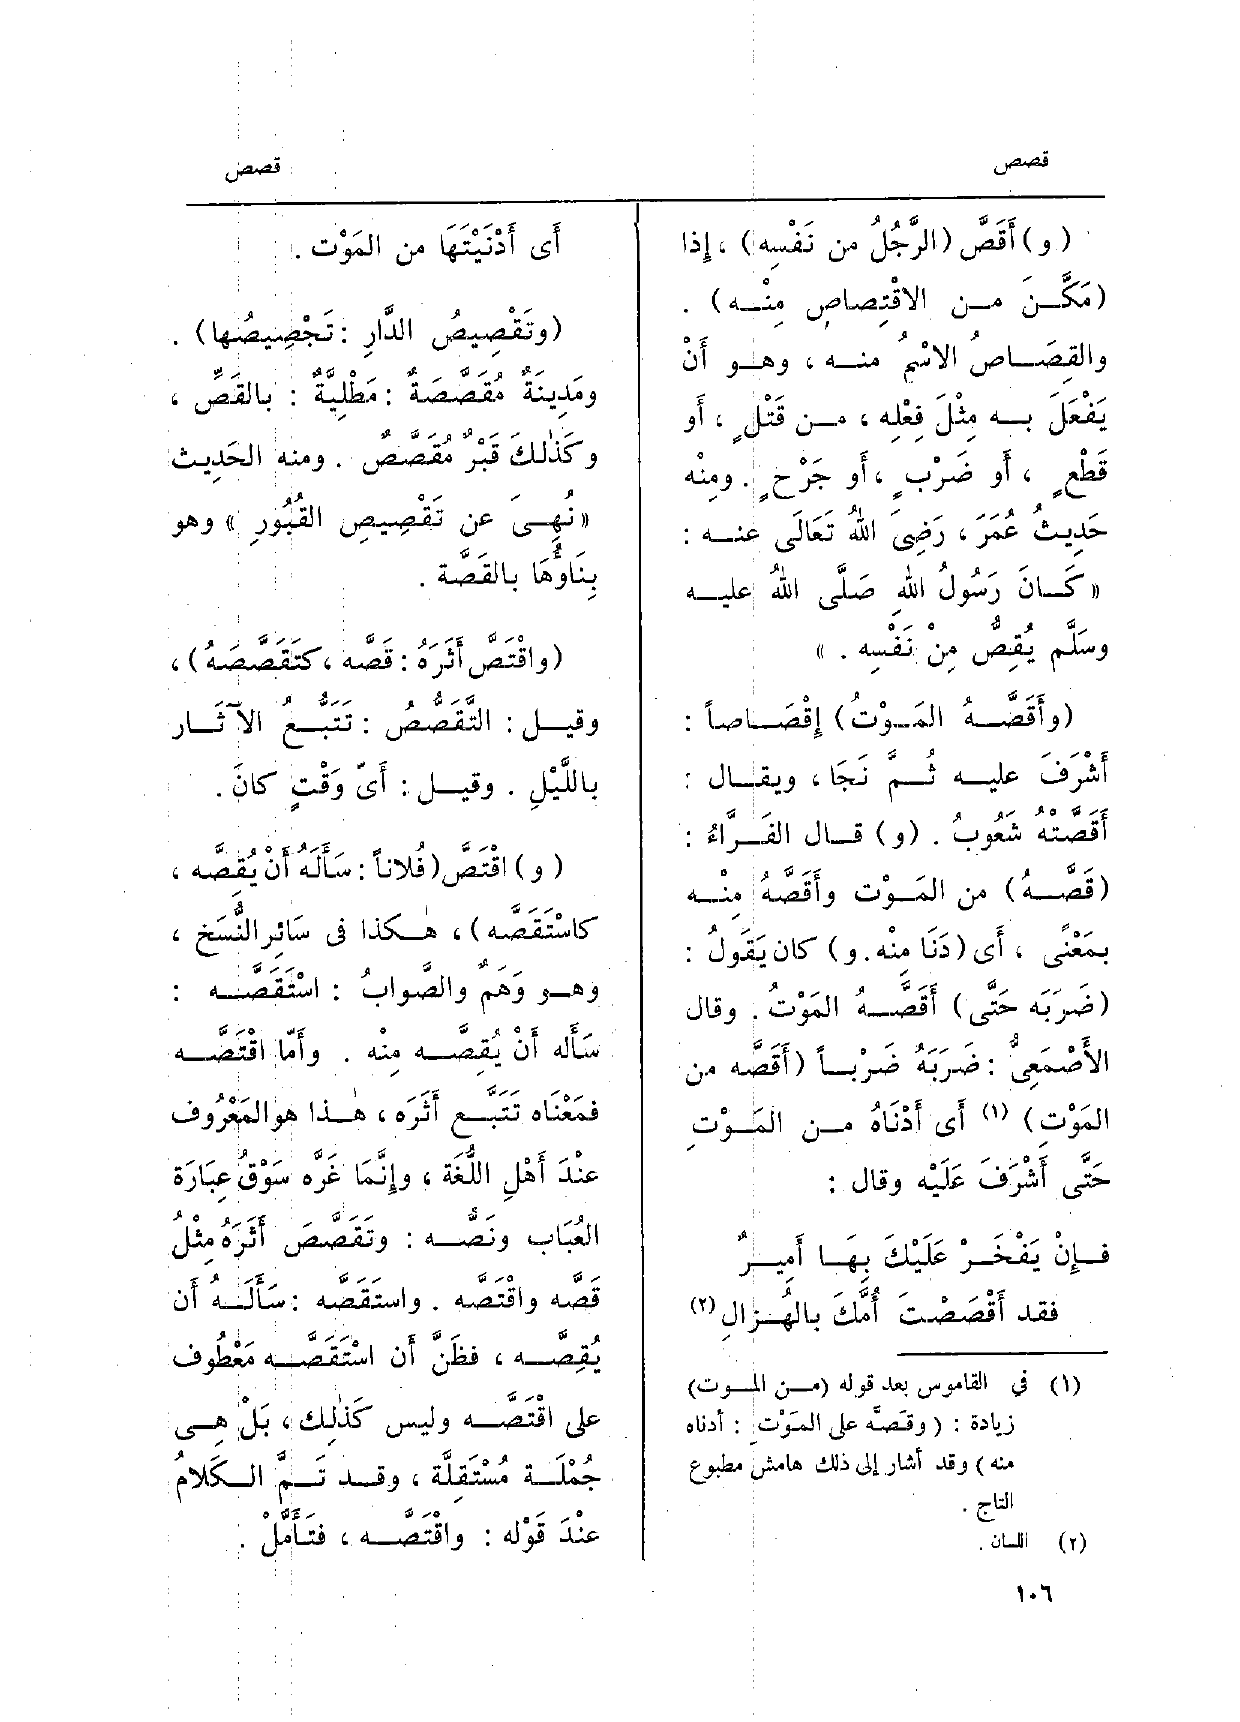 قصص
قصص
( و ) أَقَصَّ (الرَّجُلُ من نَفْسِه) ، إذا
(مَكَّنَ من الاقْتِصاص مِنْه) .
والقِصَاصُ الاسْمُ منه ، وهو أَنْ
يَفْعَلَ به مِثْلَ فِعْلِه ، من قَتْلٍ ، أَو
قَطْعٍ ، أَو ضَرْبٍ ، أَو جَرْحٍ . ومِنْه
حَدِيثُ عُمَرَ ، رَضِىَ اللهُ تَعَالَى عنه :
« كَانَ رَسُولُ اللهِ صَلَّى اللهُ عليه
وسَلَّم يُقِصُّ مِنْ نَفْسِه . »
(وأَقَصَّهُ المَوْتُ) إِقْصَاصاً :
أَشْرَفَ عليه ثُمَّ نَجَا ، ويقال :
أَقَصَّتْهُ شَعُوبُ . (و) قال الفَرَّاءُ :
(قَصَّهُ) من المَوْت وأَقَصَّهُ مِنْه
بمَعْنًى ، أَى (دَنَا مِنْه . و) كان يَقُولُ :
(ضَرَبَه حَتَّى) أَقَصَّهُ المَوْتُ . وقال
الأَصْمَعِىُّ : ضَرَبَهُ ضَرْباً (أَقَصَّه من
المَوْتِ) (١) أَى أَدْنَاهُ من المَوْتِ
حَتَّى أَشْرَفَ عَلَيْه وقال :
فإِنْ يَفْخَرْ عَلَيْكَ بِهَا أَمِيرٌ
فقد أَقْصَصْتَ أُمَّكَ بالهُزَالِ (٢)
(١) فى القاموس بعد قوله (من الموت)
زيادة : ( وقَصَّه على المَوْتِ : أدناه
منه ) وقد أشار إلى ذلك هامش مطبوع
التاج .
(٢) اللسان .
أَى أَدْنَيْتَهَا من المَوْت .
(وتَقْصِيصُ الدَّارِ : تَجْصِيصُها) .
ومَدِينَةٌ مُقَصَّصَةٌ : مَطْلِيَّةٌ : بالقَصِّ ،
وكَذٰلكَ قَبْرٌ مُقَصَّصٌ . ومنه الحَدِيث
« نُهِىَ عن تَقْصِيصِ القُبُورِ » وهو
بِنَاوُّهَا بالقَصَّة .
(واقْتَصَّ أَثَرَهُ : قَصَّه ، كتَقَصَّصَهُ) ،
وقيل : التَّقَصُّصُ : تَتَبُّعُ الآثَار
باللَّيْلِ . وقيل : أَىّ وَقْتٍ كانَ .
( و ) اقْتَصَّ (فُلاناً : سَأَلَهُ أَنْ يُقِصَّه ،
كاسْتَقَصَّه) ، هكذا فى سَائرِ النُّسَخ ،
وهو وَهَمٌ والصَّوابُ : اسْتَقَصَّه :
سَأَله أَنْ يُقِصَّه مِنْه . وأَمّا اقْتَصَّه
فمَعْناه تَتَبَّع أَثَرَه ، هٰذا هو المَعْرُوف
عنْدَ أَهْلِ اللُّغَة ، وإِنَّمَا غَرَّه سَوْقُ عِبَارَة
العُبَاب ونَصُّه : وتَقَصَّصَ أَثَرَهُ مِثْلُ
قَصَّه واقْتَصَّه . واستَقَصَّه : سَأَلَهُ أَن
يُقِصَّه ، فظَنَّ أَن اسْتَقَصَّه مَعْطُوف
على اقْتَصَّه وليس كَذٰلك ، بَلْ هى
جُمْلَة مُسْتَقِلَّة ، وقد تَمَّ الكَلامُ
عنْدَ قَوْله : واقْتَصَّه ، فتَأَمَّلْ .
١٠٦